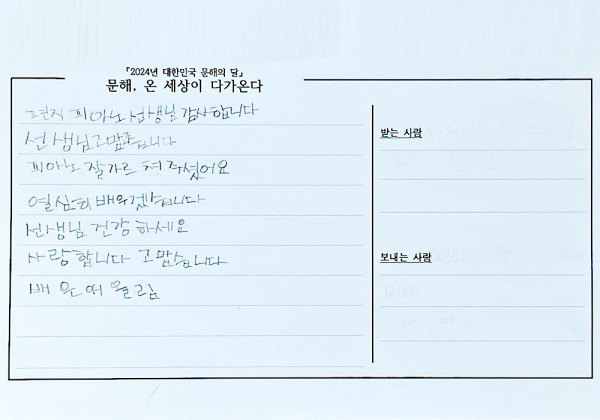 「2024년 대한민국 문해의 달」
문해, 온 세상이 다가온다
편지 피아노 선생님 감사합니다
선생님 고맙습니다
피아노 잘 가르쳐 주셨어요
열심히 배우겠습니다
선생님 건강하세요
사랑합니다 고맙습니다
올림
받는 사람
보내는 사람